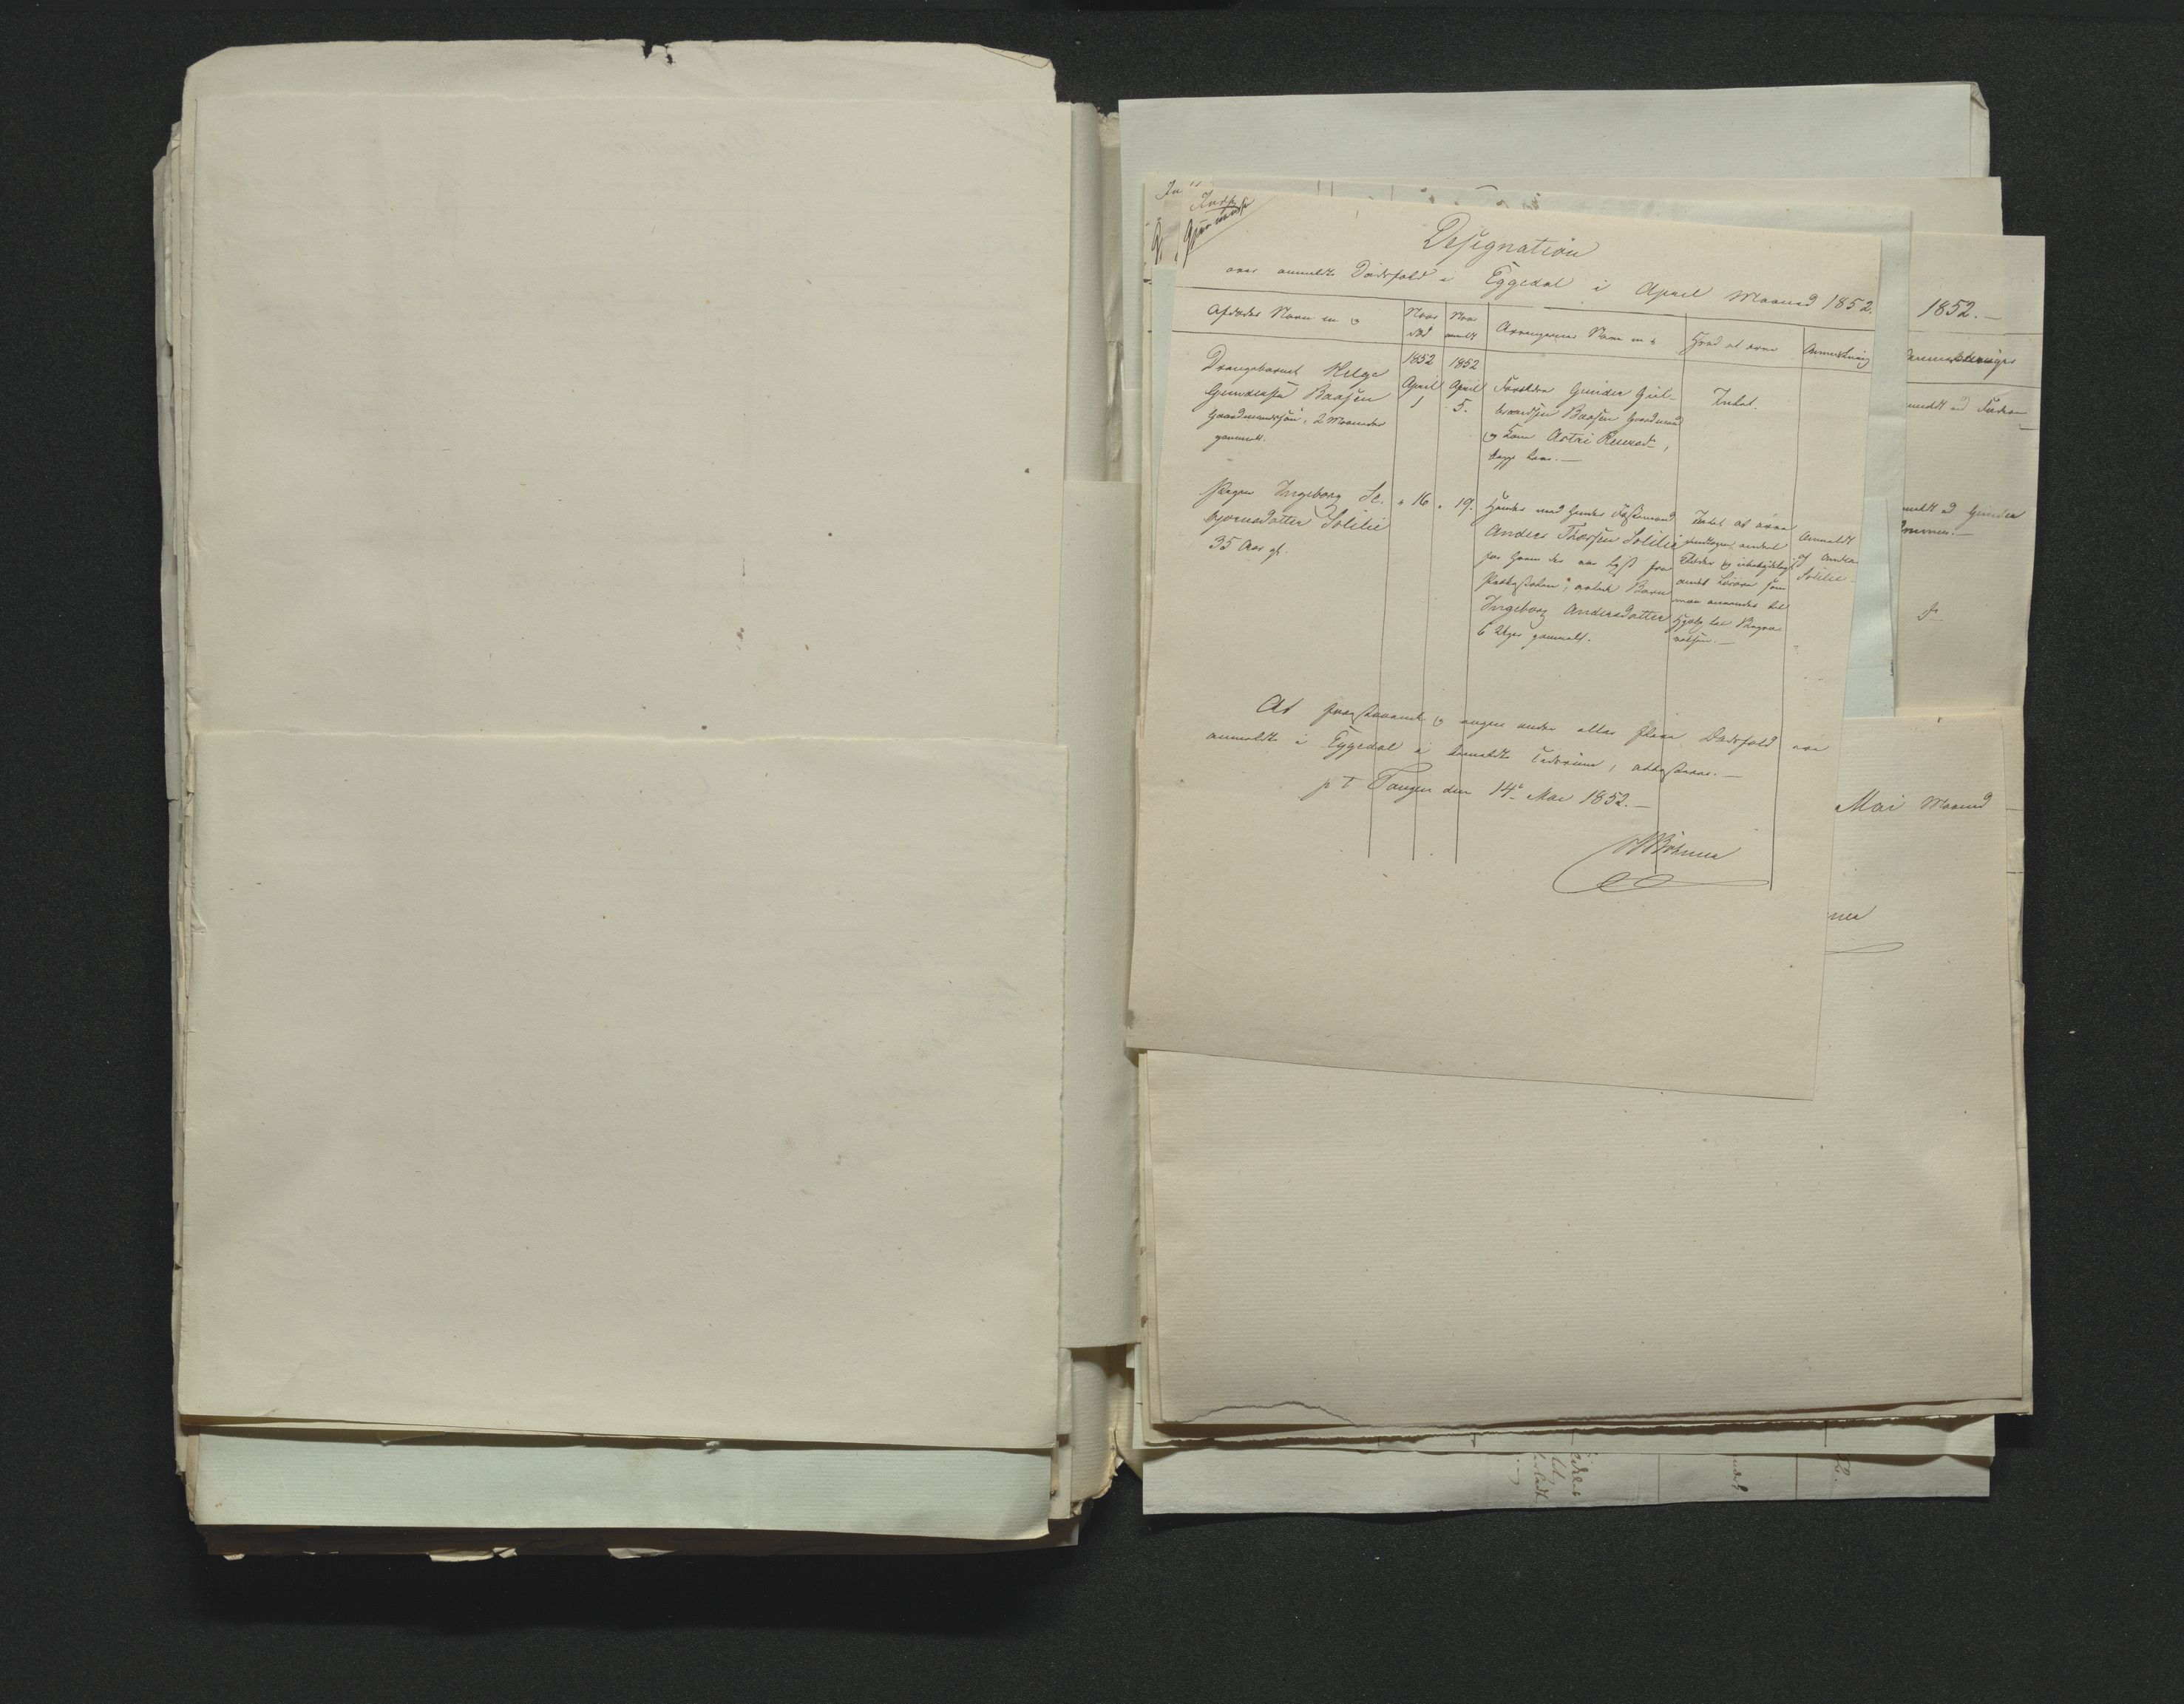 Designation
over anmeldte Dødsfald i Eggedal i April Maaned 1852.
Afdødes Navn m v
Naar død
Naar anmeldt
Arvingernes Navn m v
Hvad at arve
Anmærkning
Drengebarnet Helge
Gundersen Baasen
Gaardmandssøn, 2 Maaneder
gammelt.
1852
April
1
1852
April
5.
Forældre Gunder Gul-
brandsen Baasen Gaardmand
og Kone Astri
begge leve.
Intet.
Pigen Ingeborg
bjørnsdatter Solilie
35 Aar gl.
" 16
" 19.
Hendes med hendes Fæstemand
Anders Thorsen Solilie
for hvem der var lyst fra
Prækestolen, avlede Barn
Ingeborg Andersdatter
6 Uger gammelt.
Intet at arve
undtagen
Klæder og ubetydeligt
andet Løsøre som
maa anvendes til
Hjælp til Begra-
velsen.
Anmeldt
af Anders
Solilie
At foranstaaende og ingen andre eller flere Dødsfald ere
anmeldte i Eggedal i bemeldte Tidsrum, attesteres.
p t Tangen den 14de Mai 1852.
1852.
Anmærkninger
anmeldt af Faderen
anmeldt af Gunder
Mai Maaned